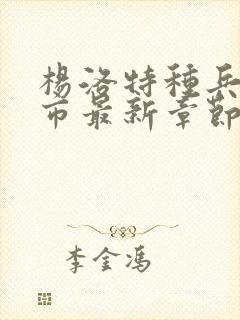 楊洛特種兵
市最新章節
李金馮